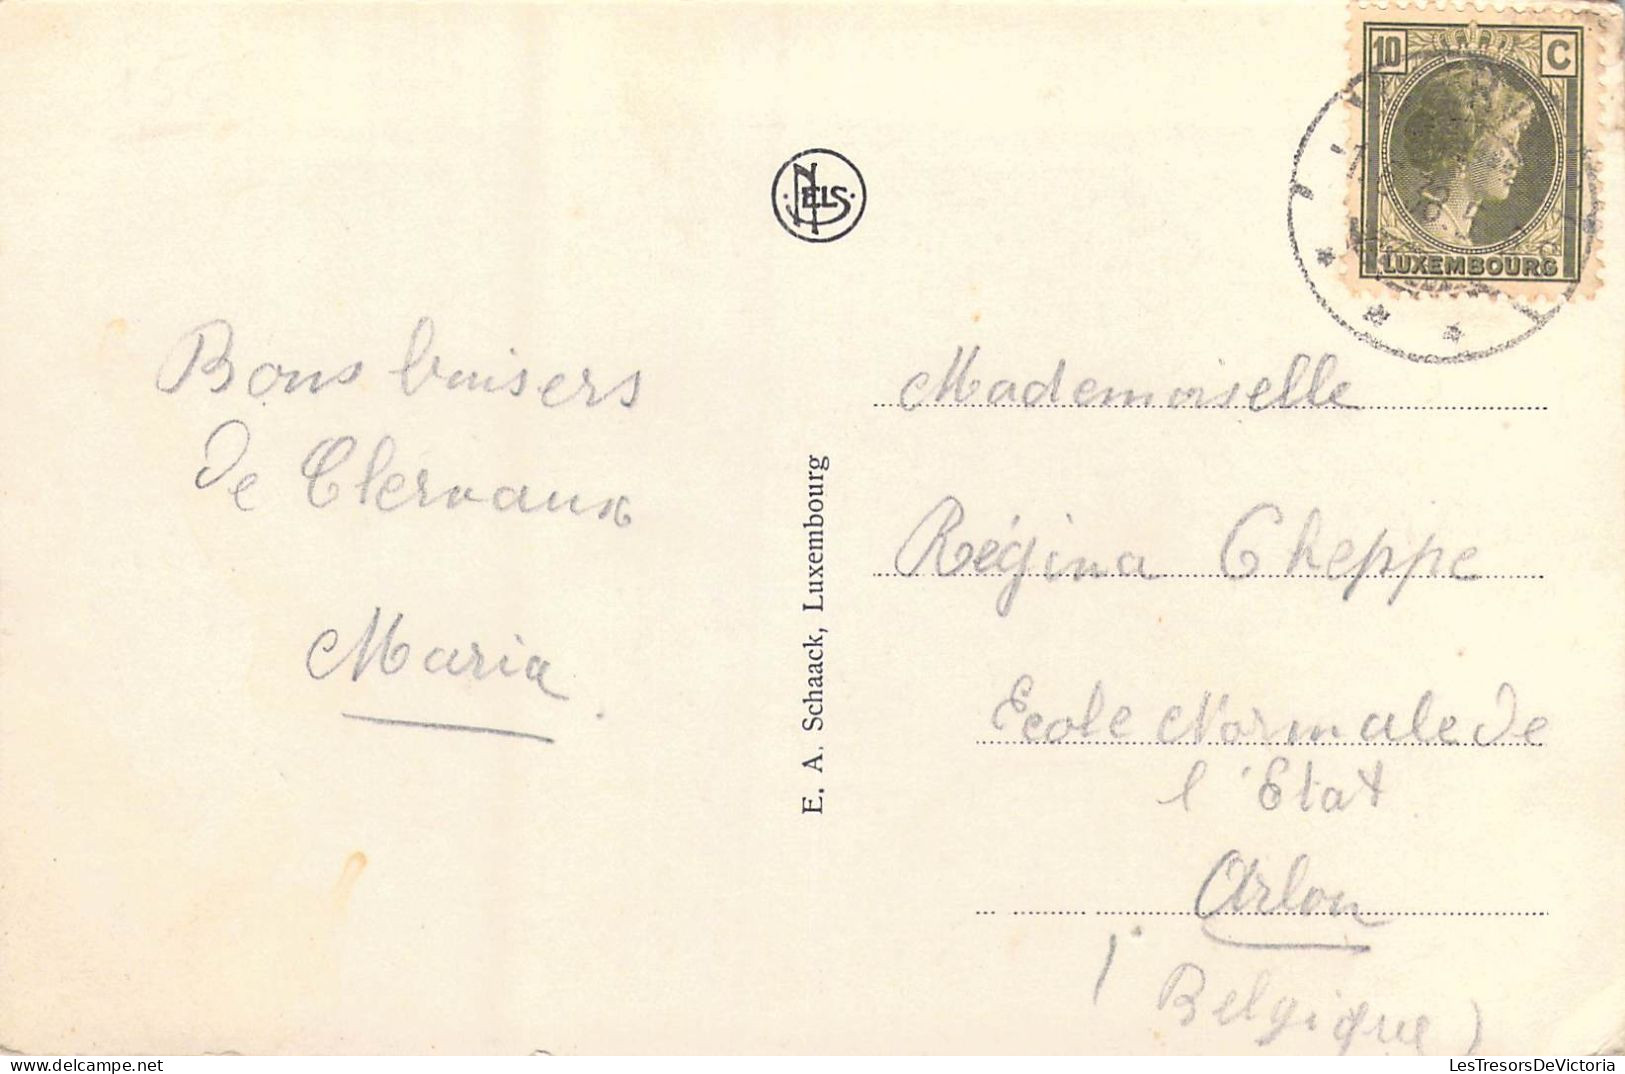 Bons baisers
de Clervaux
Maria
NELS
E. A. Schaack, Luxembourg
10 C
LUXEMBOURG
Mademoiselle
Régina Cheppe
Ecole Normale de
l'Etat
Arlon
(Belgique)
LesTresorsDeVictoria